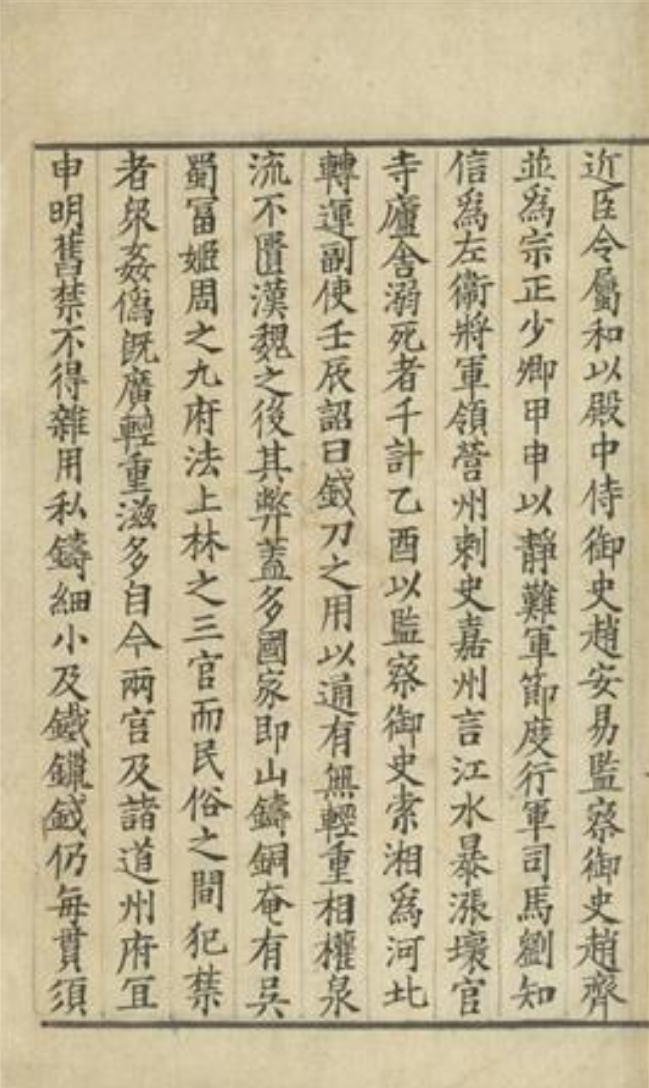 近臣令屬和以殿中侍御史趙安易監察御史趙齊
並爲宗正少卿甲申以靜難軍節度行軍司馬劉知
信爲左衞將軍領營州刺史嘉州言江水暴漲壞官
寺廬舍溺死者千計乙酉以監察御史索湘爲河北
轉運副使壬辰詔曰錢刀之用以通有無輕重相權泉
流不匱漢魏之後其弊蓋多國家即山鑄銅奄有吳
蜀冨姬周之九府法上林之三官而民俗之間犯禁
者衆姦僞旣廣輕重滋多自今兩官及諸道州府冝
申明舊禁不得雜用私鑄細小及鐵鑞錢仍每貫須